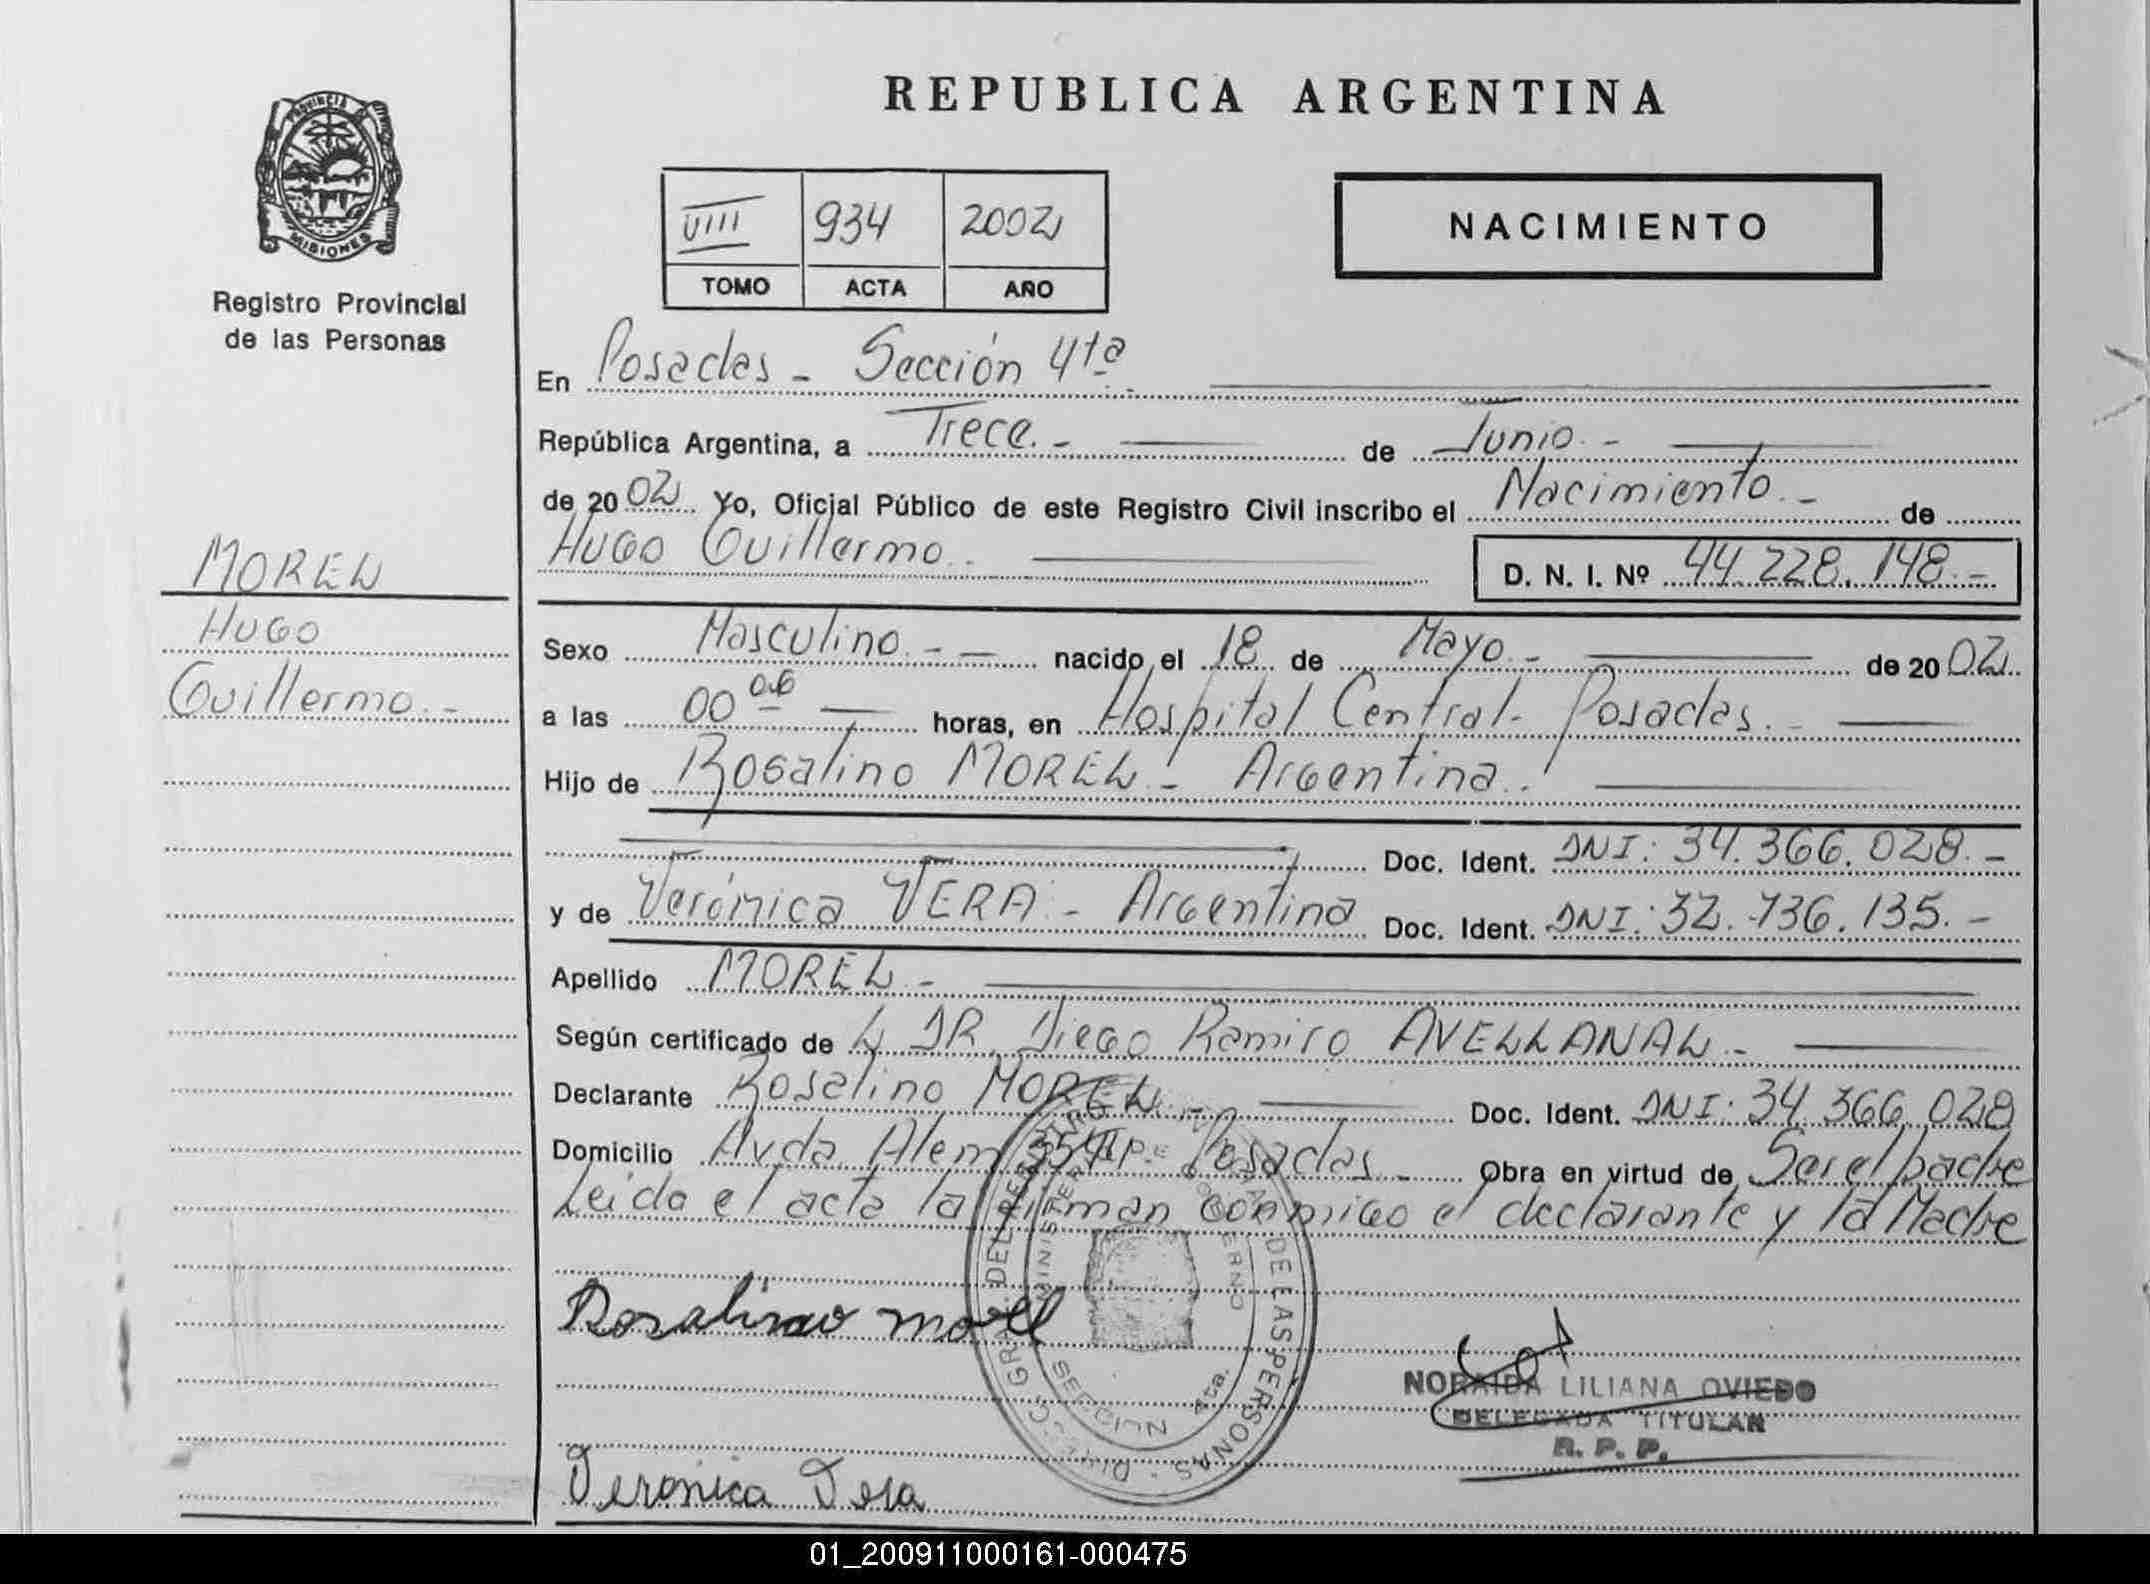 PROVINCIA
MISIONES
Registro Provincial
de las Personas
MOREL
HUGO
Guillermo.-
REPUBLICA ARGENTINA
VIII 934 2002
TOMO ACTA AÑO
NACIMIENTO
En Posadas - Sección 4ta
República Argentina, a Trece.- de Junio.-
de 2002 Yo, Oficial Público de este Registro Civil inscribo el Nacimiento.- de
HUGO Guillermo.
D. N. I. Nº 44.228.148.-
Sexo Masculino.- - nacido el 18 de Mayo.- de 2002
a las 00 06 horas, en Hospital Central- Posadas.-
Hijo de Rosalino MOREL - Argentina.
Doc. Ident. DNI: 34.366.028.-
y de Verónica VERA - Argentina Doc. Ident. DNI: 32.736.135.-
Apellido MOREL -
Según certificado de L DR. Diego Ramiro AVELLANAL -
Declarante Rosalino MOREL - Doc. Ident. DNI: 34.366.028
Domicilio Avda. Alem Posadas - Obra en virtud de Ser el padre
Leída el acta la firman conmigo el declarante y la Madre
Rosalino morel
DE LAS PERSONAS
SECCION 4ta.
NORAIDA LILIANA OVIEDO
DELEGADA TITULAR
R. P. P.
Veronica Vera
01_200911000161-000475